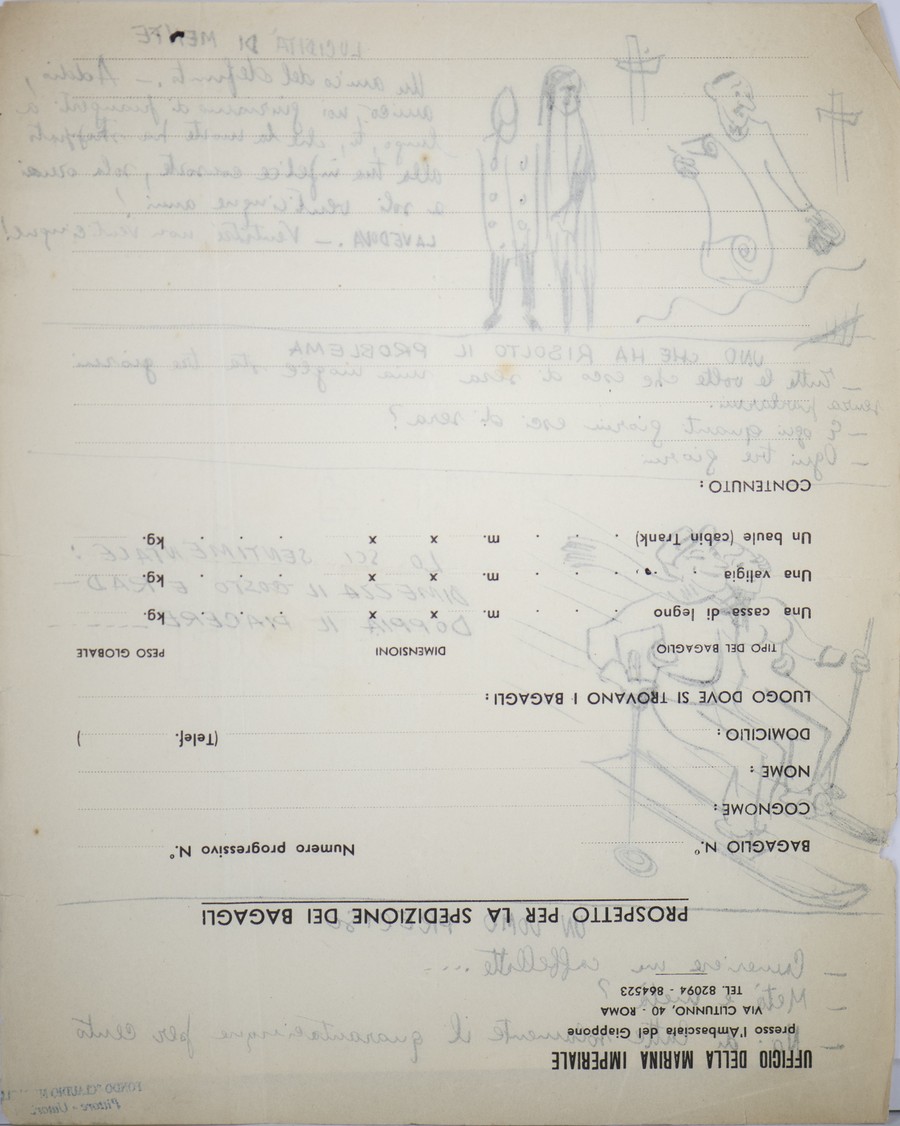 UFFICIO DELLA MARINA IMPERIALE
presso l'Ambasciata del Giappone
VIA CLITUNNO, 40 - ROMA
TEL. 82094 - 864523
PROSPETTO PER LA SPEDIZIONE DEI BAGAGLI
BAGAGLIO N.° Numero progressivo N.°
COGNOME:
NOME:
DOMICILIO: (Telef. )
LUOGO DOVE SI TROVANO I BAGAGLI:
TIPO DEL BAGAGLIO DIMENSIONI PESO GLOBALE
Una cassa di legno . . . m. x x . . . kg.
Una valigia . . . . m. x x . . . kg.
Un baule (cabin Trank) . . . m. x x . . . kg.
CONTENUTO:
LUCIDITÀ DI MENTE
Un amico del defunto. - Addio,
amico, noi giuriamo di piangerti a
lungo, te, che la morte ha strappato
alla tua infelice consorte, sola ormai
a soli venticinque anni!
LA VEDOVA. - Ventitré non venticinque!
UNO CHE HA RISOLTO IL PROBLEMA
- Tutte le volte che esco di sera mia moglie sta tre giorni
senza parlarmi.
- E ogni quanti giorni esci di sera?
- Ogni tre giorni
LO SCI SENTIMENTALE:
DIMEZZA IL COSTO E RAD-
DOPPIA IL PIACERE
UN UOMO PRECISO
- Cameriere un caffellatte ...
- Metà e metà?
- No: di latte solamente il quarantacinque per cento
FONDO "CLAUDIO
Pittore - Umori